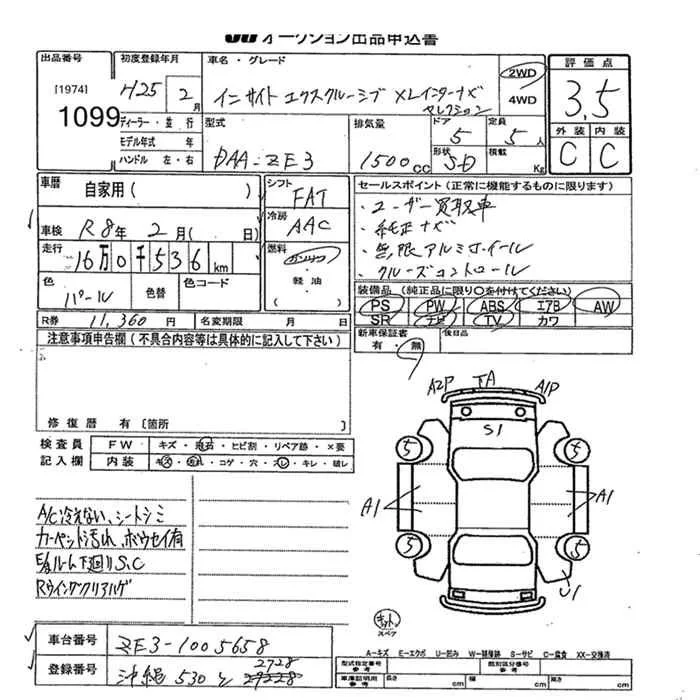 JU オークション出品申込書
出品番号
[1974]
1099
初度登録年月
H25 年 2 月
ディーラー・並 行
モデル年式 年
ハンドル 左・右
車名・グレード
インサイト エクスクルーシブ XLインターナビ
セレクション
2WD
4WD
型式
DAA-ZE3
排気量
1500cc
ドア
5
定員
5人
形状
SD
積載
Kg
評価点
3.5
外装 内装
C C
車歴
自家用( )
車検
R8年 2月( 日)
走行
16万0千536km
色
パール
色替
色コード
シフト
FAT
冷房
AAC
燃料
ガソリン
・
軽油
セールスポイント(正常に機能するものに限ります)
・ユーザー買取車
・純正ナビ
・無限アルミホイール
・クルーズコントロール
装備品(純正品に限り○を付けてください)
PS PW ABS エアB AW
SR ナビ TV カワ
R券 11,360円
名変期限 月 日
新車保証書
有・無
後日品
注意事項申告欄(不具合内容等は具体的に記入して下さい)
修復歴 有〔箇所 〕
検査員
記入欄
FW キズ・飛石・ヒビ割・リペア跡・×要
内装 キズ・汚れ・コゲ・穴・スレ・キレ・破レ
A/C冷えない、シートシミ
カーペット汚れ、ボウセイ有
E/gルーム下廻りS,C
Rウイングクリアハゲ
A2P FA A1P
S1
5 5
A1 A1
5 5
U1
キット
スペア
車台番号
ZE3-1005658
登録番号
沖縄 530 と 2728
A-キズ E-エクボ U-凹み W-補修跡 S-サビ C-腐食 XX-交換済
型式指定番号
参考
類別区分番号
参考
車庫証明用
参考
長さ cm 幅 cm 高さ cm